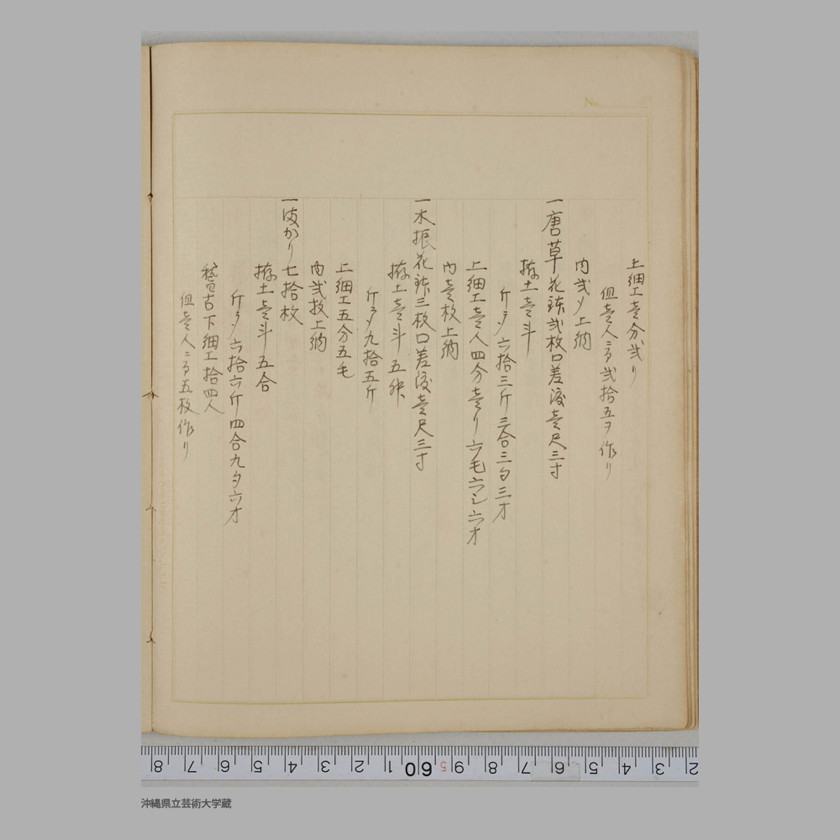 上細工壱分弐り
但壱人ニ而弐拾五ヲ作り
内弐ツ上納
一唐草花鉢弐枚口差渡壱尺三寸
拵土壱斗
斤ヲ六拾三斤三合三勺三才
上細工壱人四分壱り六毛六シ六才
内壱枚上納
一水振花鉢三枚口差渡壱尺三寸
拵土壱斗五升
斤ヲ九拾五斤
上細工五分五毛
内弐枚上納
一はかり七拾枚
拵土壱斗五合
斤ヲ六拾六斤四合九夕六才
稽古下細工拾四人
但壱人ニ而五枚作り
No.
8 7 6 5 4 3 2 1 60 9 8 7 6 5 4 3 2
沖縄県立芸術大学蔵